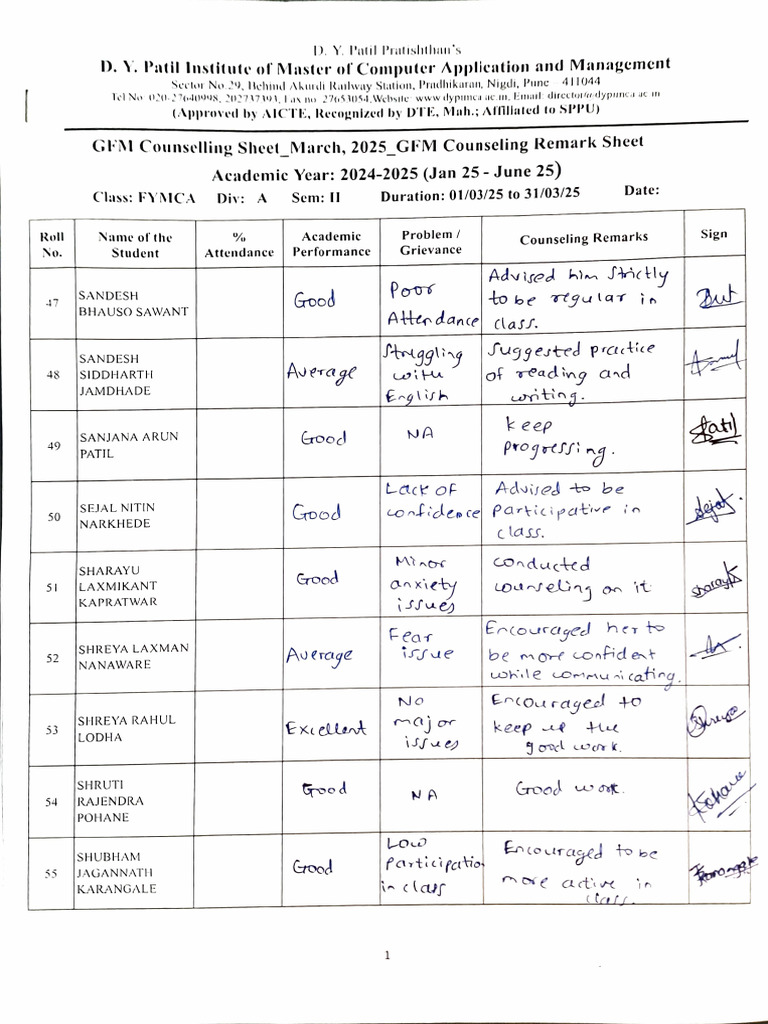 D. Y. Patil Pratishthan's
D. Y. Patil Institute of Master of Computer Application and Management
Sector No.29, Behind Akurdi Railway Station, Pradhikaran, Nigdi, Pune 411044
Tel No. 020-27640998, 202737393, Fax no. 27653054,Website: www.dypimca.ac.in, Email: director@dypimca.ac.in
(Approved by AICTE, Recognized by DTE, Mah.; Affiliated to SPPU)
GFM Counselling Sheet_March, 2025_GFM Counseling Remark Sheet
Academic Year: 2024-2025 (Jan 25 - June 25)
Class: FYMCA Div: A Sem: II Duration: 01/03/25 to 31/03/25 Date:
Roll No.
Name of the Student
% Attendance
Academic Performance
Problem / Grievance
Counseling Remarks
Sign
47
SANDESH
BHAUSO SAWANT
Good
Poor
Attendance
Advised him strictly
to be regular in
class.
48
SANDESH
SIDDHARTH
JAMDHADE
Average
Struggling
with
English
Suggested practice
of reading and
writing.
49
SANJANA ARUN
PATIL
Good
NA
keep
progressing.
Patil
50
SEJAL NITIN
NARKHEDE
Good
Lack of
confidence
Advised to be
participative in
class.
Sejal
51
SHARAYU
LAXMIKANT
KAPRATWAR
Good
Minor
anxiety
issues
conducted
counseling on it
Sharayu
52
SHREYA LAXMAN
NANAWARE
Average
Fear
issue
Encouraged her to
be more confident
while communicating.
53
SHREYA RAHUL
LODHA
Excellent
No
major
issues
Encouraged to
keep up the
good work.
Shreya
54
SHRUTI
RAJENDRA
POHANE
Good
NA
Good work.
55
SHUBHAM
JAGANNATH
KARANGALE
Good
Low
Participation
in class
Encouraged to be
more active in
class.
1